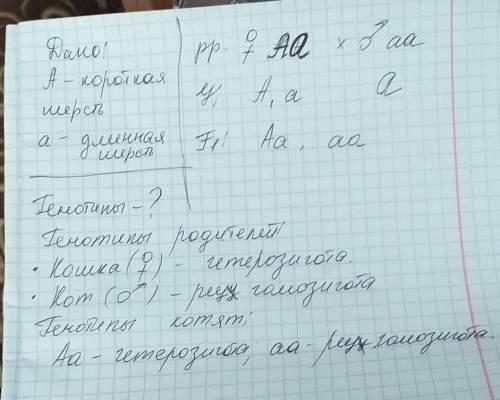 Дано:
А - короткая
шерсть
а - длинная
шерсть
рр: ♀ Аа × ♂ аа
G: А, а а
F₁: Аа, аа
Генотипы - ?
Генотипы родителей:
• Кошка (♀) - гетерозигота.
• Кот (♂) - рец. гомозигота
Генотипы котят:
Аа - гетерозигота; аа - рец. гомозигота.